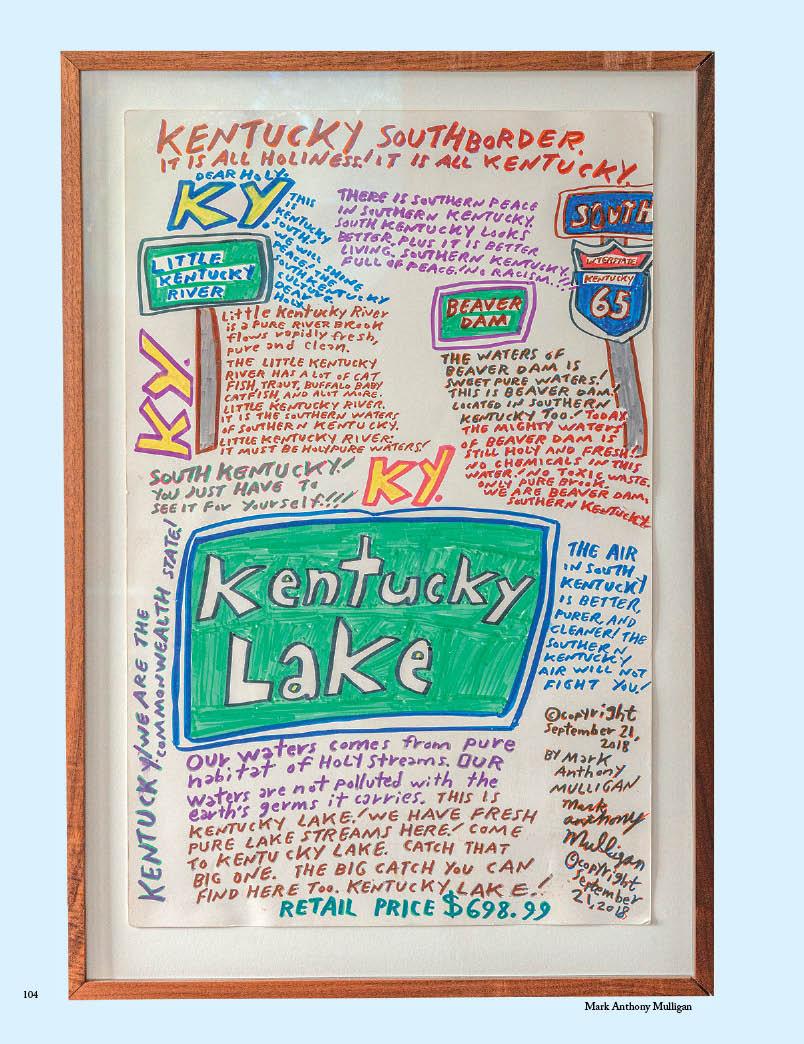 KENTUCKY SOUTHBORDER.
IT IS ALL HOLINESS! IT IS ALL KENTUCKY.
DEAR HOLY.
KY
THIS
IS
KENTUCKY
SOUTH!
WE WILL SHINE
PEACE! THE
SOUTH KENTUCKY
CULTURE.
DEAR
HOLY.
THERE IS SOUTHERN PEACE
IN SOUTHERN KENTUCKY.
SOUTH KENTUCKY LOOKS
BETTER. PLUS IT IS BETTER
LIVING. SOUTHERN KENTUCKY.
FULL OF PEACE! NO RACISM.!!!
SOUTH
INTERSTATE
KENTUCKY
65
LITTLE
KENTUCKY
RIVER
Little Kentucky River
is a PURE RIVER BROOK
flows rapidly fresh,
pure and clean.
THE LITTLE KENTUCKY
RIVER HAS A LOT OF CAT
FISH, TROUT, BUFFALO BABY
CATFISH, AND ALOT MORE.
LITTLE KENTUCKY RIVER.
IT IS THE SOUTHERN WATERS
OF SOUTHERN KENTUCKY.
LITTLE KENTUCKY RIVER:
IT MUST BE HOLYPURE WATERS!
KY.
BEAVER
DAM
THE WATERS OF
BEAVER DAM IS
SWEET PURE WATERS!
THIS IS BEAVER DAM!
LOCATED IN SOUTHERN
KENTUCKY TOO! TODAY
THE MIGHTY WATERS
OF BEAVER DAM IS
STILL HOLY AND FRESH!
NO CHEMICALS IN THIS
WATER! NO TOXIC WASTE.
ONLY PURE BROOK.
WE ARE BEAVER DAM,
SOUTHERN KENTUCKY
SOUTH KENTUCKY!
YOU JUST HAVE TO
SEE IT FOR YourSelf!!!
KY.
KENTUCKY! WE ARE THE
COMMONWEALTH STATE!
Kentucky
Lake
THE AIR
IN SOUTH
KENTUCKY
IS BETTER,
PURER, AND
CLEANER! THE
SOUTHERN
KENTUCKY
AIR WILL NOT
FIGHT YOU!
OUR waters comes from pure
habitat of HOLY Streams. OUR
waters are not polluted with the
earth's germs it carries. THIS IS
KENTUCKY LAKE! WE HAVE FRESH
PURE LAKE STREAMS HERE! COME
TO KENTUCKY LAKE. CATCH THAT
BIG ONE. THE BIG CATCH YOU CAN
FIND HERE TOO. KENTUCKY LAKE!
RETAIL PRICE $698.99
©copyright
September 21,
2018
BY Mark
Anthony
MULLIGAN
Mark
anthony
Mulligan
©copyright
September
21, 2018
104
Mark Anthony Mulligan